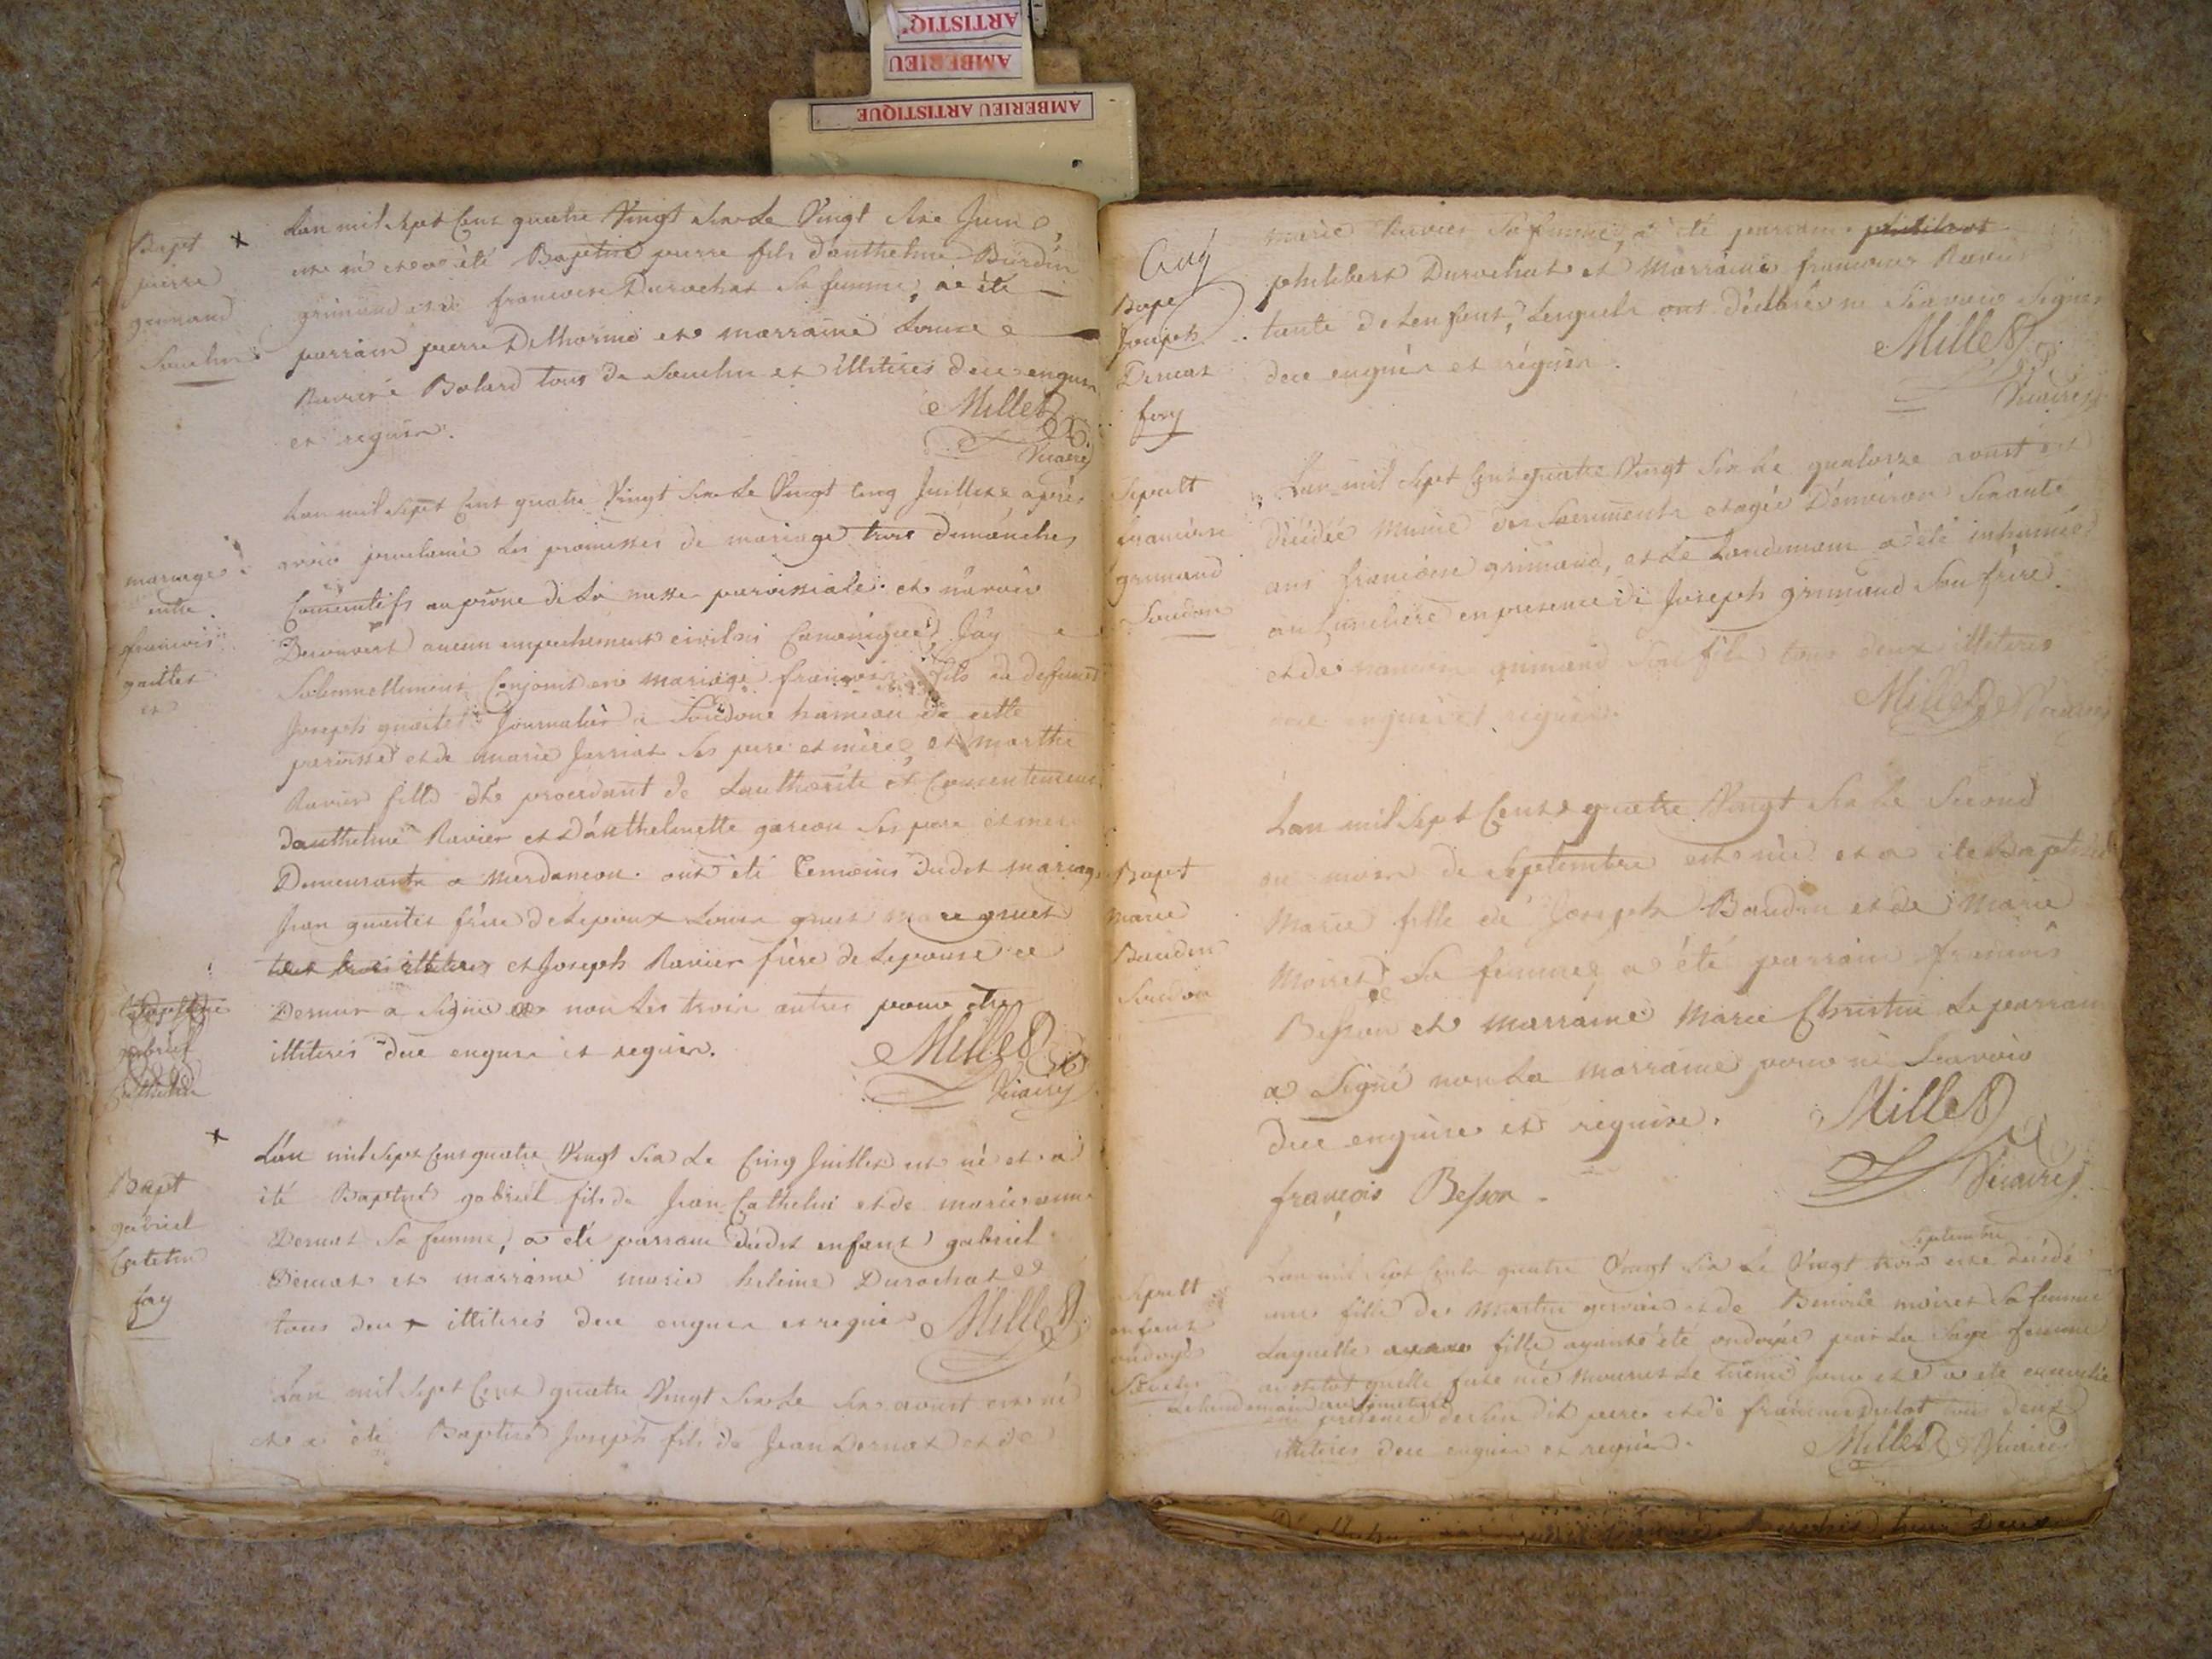 ARTISTIQ
AMBERIEU
AMBERIEU ARTISTIQUE
Bapt
pierre
grimaud
Souclin
Lan mil Sept Cent quatre Vingt Six Le Vingt Six Juin
est né et a été Baptisé pierre fils danthelme Burdin
grimaud et de francoise Durochat Sa femme, a été
parrain pierre Delhorme et marraine Louise
Ravier Bolard tous de Souclin et illiterés deue enquis
et requis.
Millet
Vicaire
mariage
entre
francois
quittet
et
Lan mil Sept Cent quatre Vingt Six Le Vingt Cinq Juillet après
avoir proclamé Les promesses de mariage trois dimanches
Consecutifs au prône de La messe paroissiale et n'avoir
Decouvert aucun empechement civil ni Canonique Jay
Solemnellement Conjoint en mariage francois fils de defunt
Joseph quaitet Journalier a Soudon hameau de cette
paroisse et de marie Jarriat Ses pere et mere, et marthe
Ravier fille de procedant de Lauthorité et Consentement
danthelme Ravier et danthelmette garcon Ses pere et mere
Demeurants a merdancon. ont été temoins dudit mariage
Jean quaitet frere de Lepoux Louis gruet marc gruet
tous trois illiteres et Joseph Ravier frere de Lepouse ce
Dernier a Signé non Les trois autres pour etre
illiterés due enquis et requis.
Millet
Vicaire
Baptisé
gabriel
Cathelin
Bapt
gabriel
Catelin
fay
Lan mil Sept Cent quatre Vingt Six Le Cinq Juillet est né et a
été Baptisé gabriel fils de Jean Cathelin et de marie anne
Dernat Sa femme, a été parrain dudit enfant gabriel
Dernat et marraine marie helaine Durochat
tous deux illiterés deue enquis et requis
Millet
Lan mil Sept Cent quatre Vingt Six Le Six aoust est né
et a été Baptisé Joseph fils de Jean Dernat et de
Cinq
Bape
Joseph
Dernat
fay
marie Ravier Sa femme, a été parrain philibert
philibert Durochat et Marraine francoise Ravier
tante de Lenfant, Lesquels ont déclarés ne Scavoir Signer
deue enquis et requis.
Millet
Vicaire
Sepult
francoise
grimaud
Soudon
Lan mil Sept Cent quatre Vingt Six Le quatorze aoust est
décédée munie des Sacrements et agée D'environ Soixante
ans francoise grimaud, et Le Landemain a été inhumée
au Cimetiere en presence de Joseph grimaud Son frere
et de grimaud Son fils tous deux illiteres
deue enquis et requis.
Millet Vicaire
Bapt
marie
Baudin
Soudon
Lan mil Sept Cent quatre Vingt Six Le Second
du mois de Septembre est née et a été Baptisée
Marie fille de Joseph Baudin et de Marie
Moiret Sa femme, a été parrain francois
Besson et Marraine Marie Christin Le parrain
a Signé non La marraine pour ne Scavoir
deue enquise et requise.
Millet
Vicaire
françois Besson
Sepult
enfant
ondoyé
Souclin
Septembre
Lan mil Sept Cent quatre Vingt Six Le Vingt trois est décédé
une fille de Martin gervais et de Benoite moiret Sa femme
Laquelle fille ayant été ondoyée par La Sage femme
aussitot quelle fut née mourut Le même jour et a été ensevelie
Le Lendemain au Cimetiere
en presence dudit pere et de francois dulot tous deux
illiterés deue enquis et requis.
Millet Vicaire